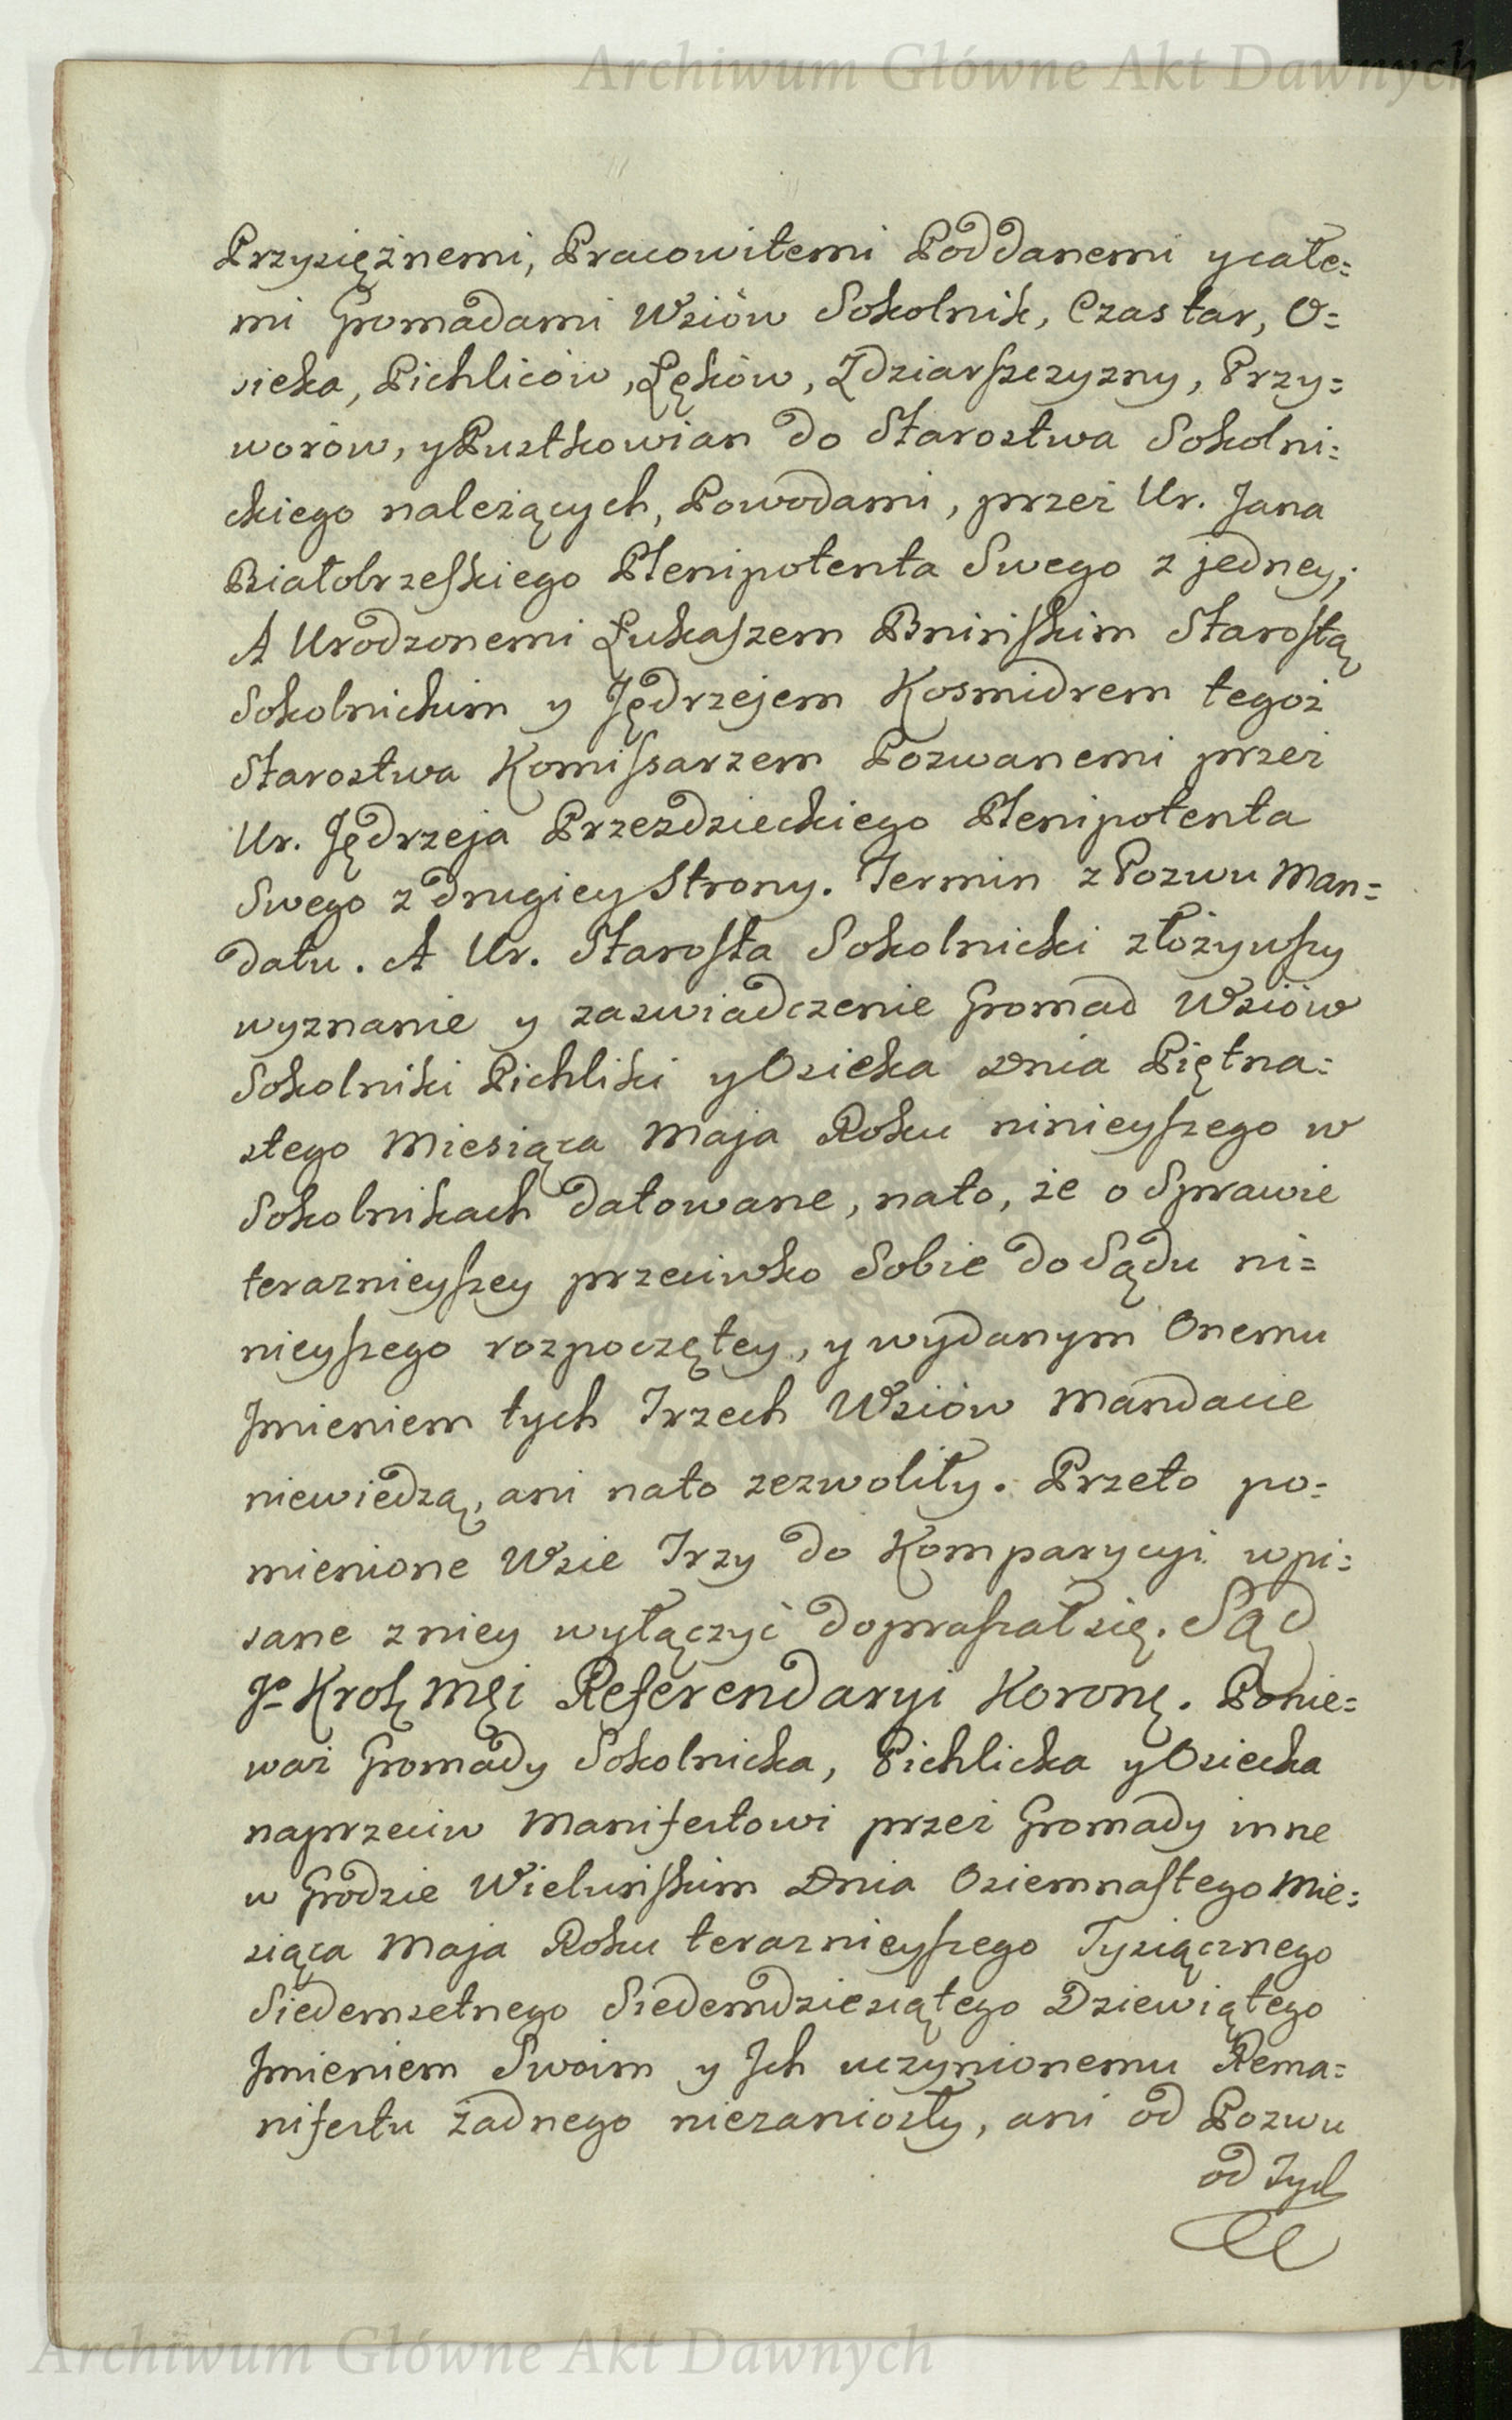 Archiwum Główne Akt Dawnych
Przysiężnemi, Pracowitemi Poddanemi y całe=
mi Gromadami Wsiów Sokolnik, Czastar, O=
sieka, Pichliców, Lęków, Zdziarszczyzny, Przy=
worów, y Pustkowian do Starostwa Sokolni=
ckiego należących, Powodami, przez Ur. Jana
Białobrzeskiego Plenipotenta Swego z jedney;
A Urodzonemi Łukaszem Bnińskim Starostą
Sokolnickim y Jędrzejem Kosmidrem tegoż
Starostwa Komissarzem Pozwanemi przez
Ur. Jędrzeja Przezdzieckiego Plenipotenta
Swego z drugiey Strony. Termin z Pozwu Man=
datu. A Ur. Starosta Sokolnicki złożywszy
wyznanie y zaswiadczenie Gromad Wsiów
Sokolniki Pichliki y Osieka Dnia Piętna=
stego Miesiąca Maja Roku ninieyszego w
Sokolnikach datowane, nato, że o Sprawie
teraznieyszey przeciwko Sobie do Sądu ni=
nieyszego rozpoczętey, y wydanym Onemu
Jmieniem tych Trzech Wsiów Mandacie
niewiedzą, ani nato zezwoliły. Przeto po=
mienione Wsie Trzy do Komparycyi wpi=
sane zniey wyłączyć dopraszał się. Sąd
Jo Krol Mći Referendaryi Koronę. Ponie=
waż Gromady Sokolnicka, Pichlicka y Osiecka
naprzeciw Manifestowi przez Gromady inne
w Grodzie Wieluńskim Dnia Osiemnastego Mie=
siąca Maja Roku teraznieyszego Tysiącznego
Siedemsetnego Siedemdziesiątego Dziewiątego
Jmieniem Swoim y Jch uczynionemu Rema=
nifestu żadnego niezaniosły, ani od Pozwu
od Tych
Archiwum Główne Akt Dawnych